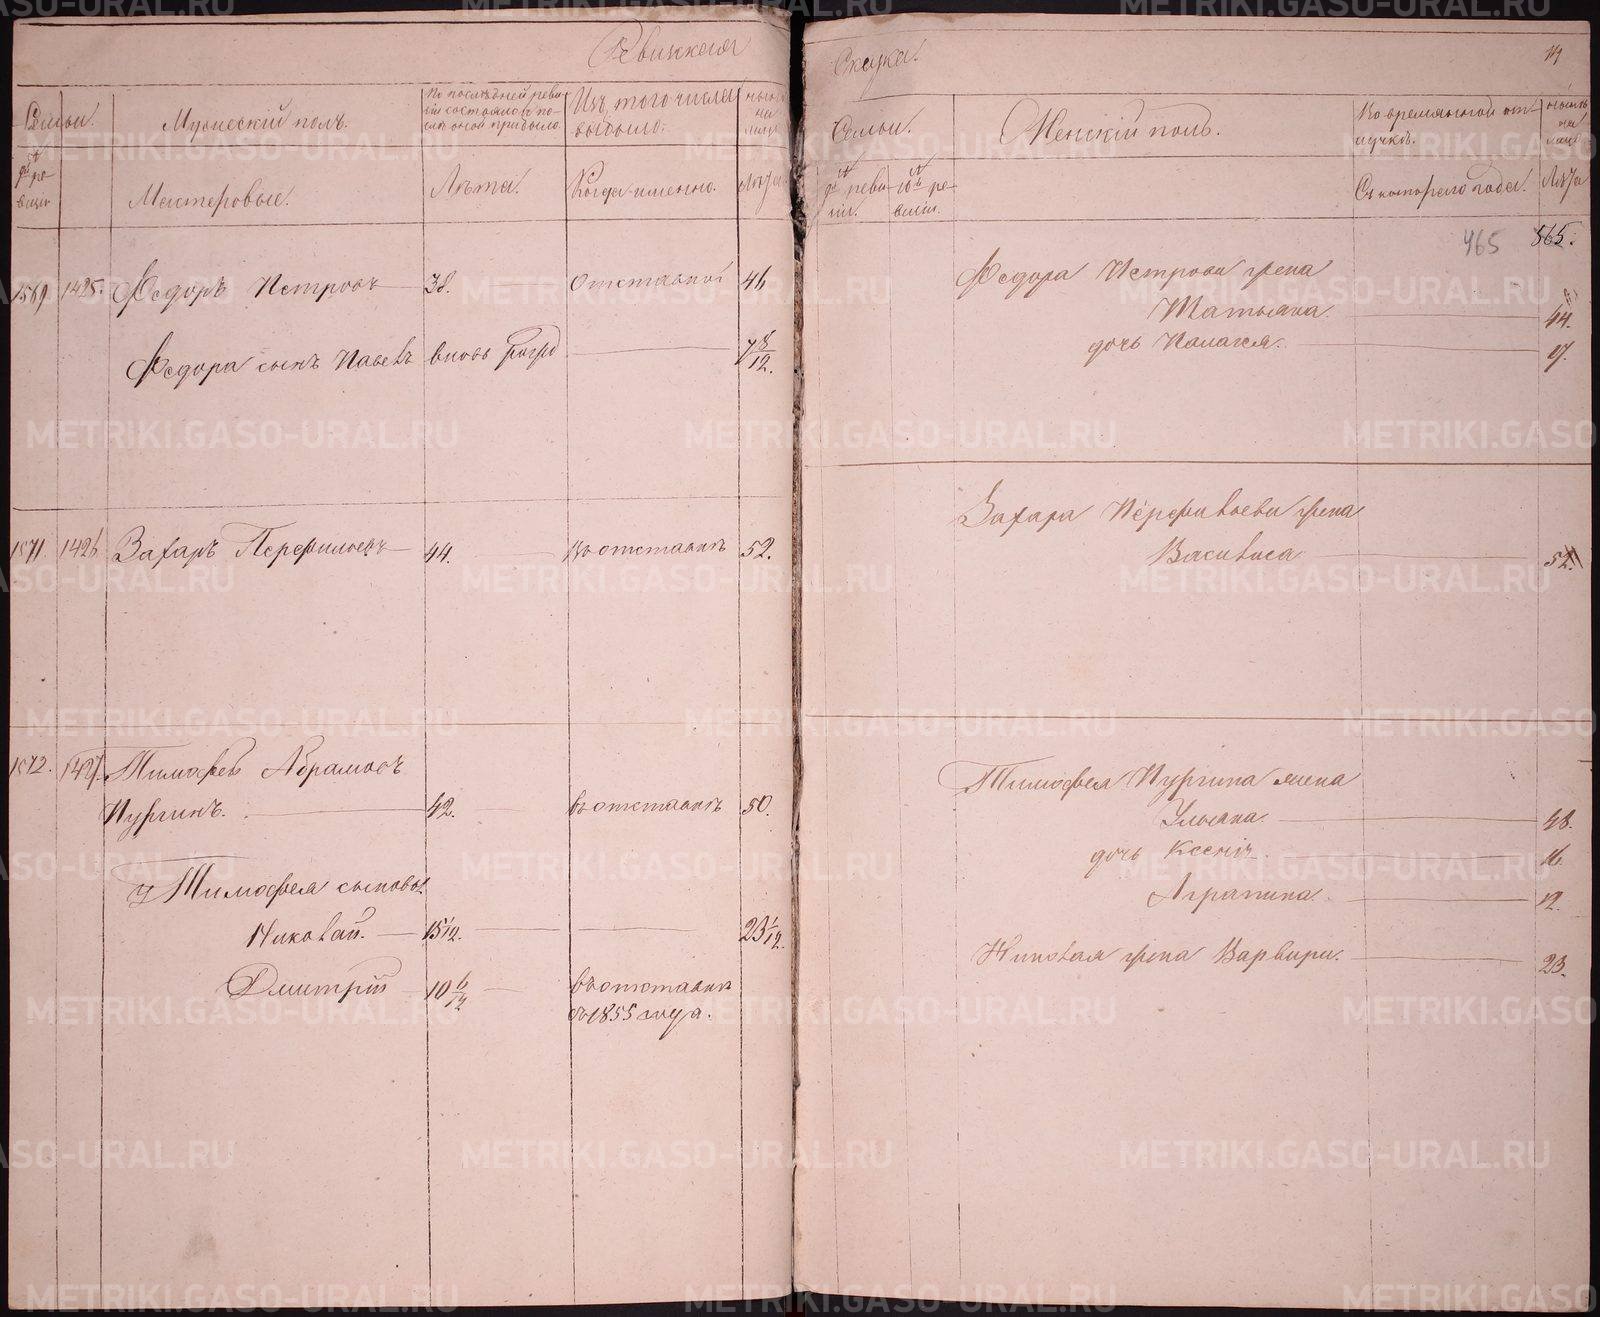 Ревизская
Семьи.
Мужескій полъ.
По последней реви-
зіи состояло и по-
слѣ оной прибыло.
Изъ того числа
выбыло:
нынѣ
на
лицо
№
9й ре-
визіи
Мастеровые.
Лѣта.
Когда именно.
Лѣта.
1569 1425. Федоръ Петровъ 38. отставной 46
Федора сынъ Павелъ вновь рожд 7 8/12.
1571. 1426 Захаръ Перфильевъ 44. въ отставкѣ 52.
1572. 1427. Тимофей Абрамовъ
Пургинъ. 42. въ отставкѣ 50.
у Тимофея сыновья
Николай. 15 1/12. 23 1/12.
Дмитрій 10 6/12 въ отставкѣ
съ 1855 года.
Сказка.
Семьи.
Женскій полъ.
Во временной от-
лучкѣ.
нынѣ
на
лицо
№
9й реви-
зіи.
№
10й ре-
визіи.
Съ котораго года.
Лѣта
465 565.
Федора Петрова жена
Татьяна. 44.
дочь Палагея. 17.
Захара Перфильева жена
Василиса 52.
Тимофея Пургина жена
Ульяна. 48.
дочь Ксенія 16
Аграпина. 12.
Николая жена Варвара. 23.
METRIKI.GASO-URAL.RU